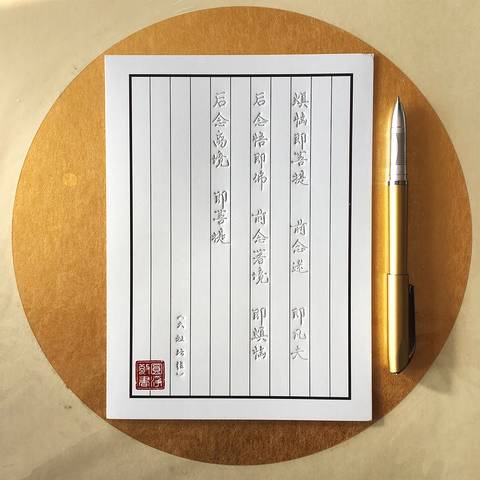 煩惱即菩提 前念迷 即凡夫
后念悟即佛 前念著境 即煩惱
后念离境 即菩提
《六祖坛经》